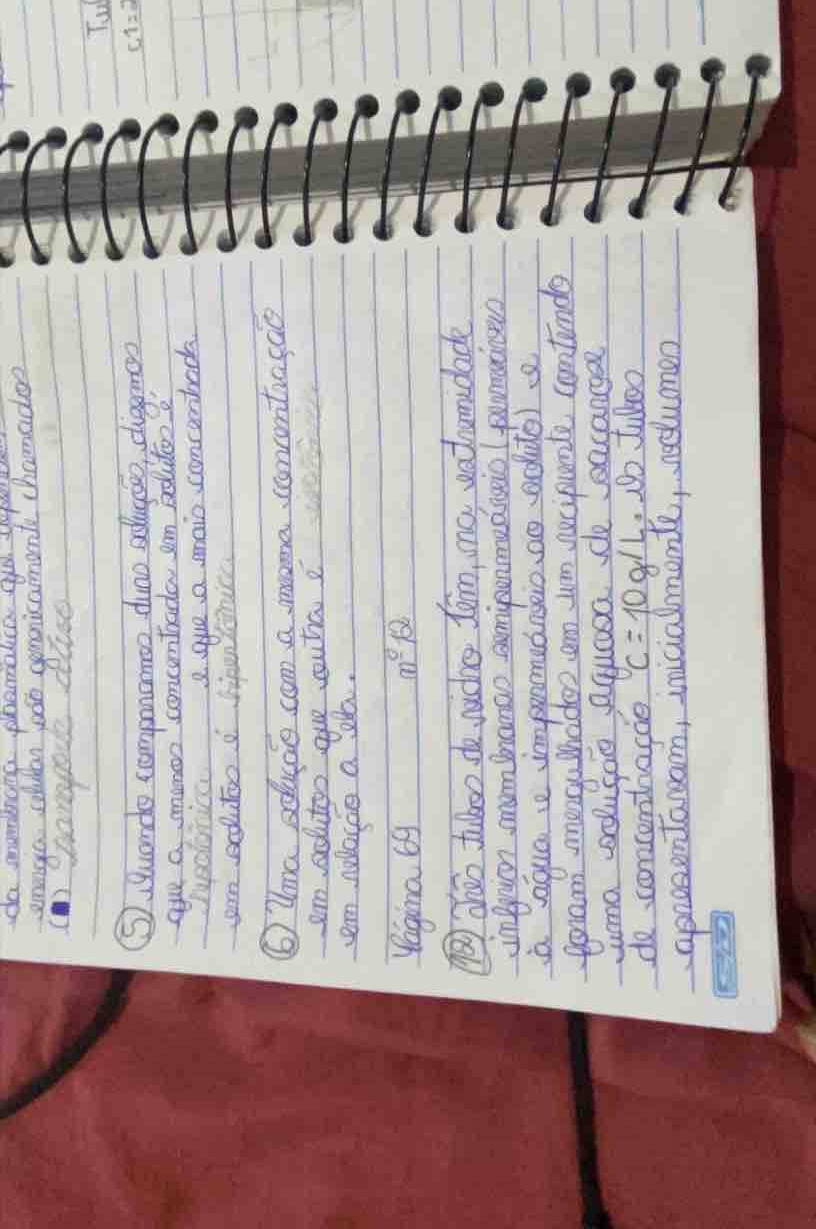 da membrana plasmática que
energia celular são genericamente chamados
transporte ativo
(5) Quando comparamos duas soluções, dizemos
que a menos concentrada em solutos é
hipotônica e que a mais concentrada
em solutos é hipertônica
(6) Uma solução com a mesma concentração
em solutos que outra é isotônica
em relação a ela.
Página 69 nº 12
(12) Três tubos de vidro têm, na extremidade
inferior membranas semipermeáveis (permeáveis
à água e impermeáveis ao soluto) e
foram mergulhados em um recipiente contendo
uma solução aquosa de sacarose
de concentração C = 10 g/L. Os tubos
apresentavam, inicialmente, volumes